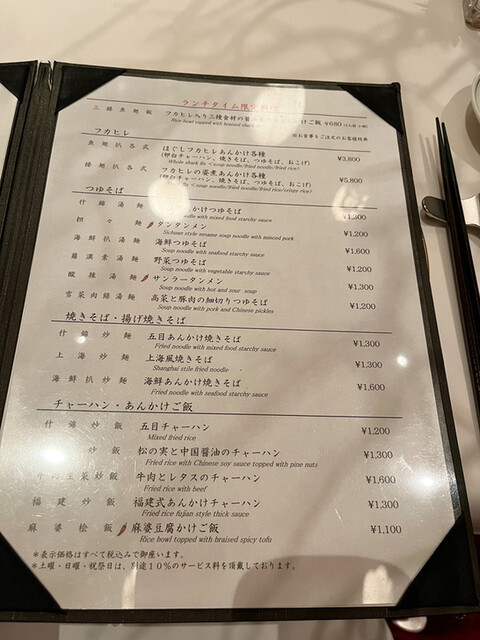 ランチタイム限定
三絲魚翅飯 フカヒレ入り三種食材の かけご飯 ¥680
Rice bowl topped with braised shark
※お食事をご注文のお客様特典
フカヒレ
魚翅扒各式 ほぐしフカヒレあんかけ各種 ¥3,800
(卵白チャーハン、焼きそば、つゆそば、おこげ)
Whole shark fin <soup noodle/fried noodle/fried rice>
排翅扒各式 フカヒレの姿煮あんかけ各種 ¥5,800
(卵白チャーハン、焼きそば、つゆそば、おこげ)
<soup noodle/fried noodle/fried rice/crispy rice>
つゆそば
什錦湯麺 かけつゆそば ¥1,300
noodle with mixed food starchy sauce
担々麺 タンタンメン ¥1,200
Sichuan style sesame soup noodle with minced pork
海鮮扒湯麺 海鮮つゆそば ¥1,600
Soup noodle with seafood starchy sauce
羅漢素湯麺 野菜つゆそば ¥1,200
Soup noodle with vegetable starchy sauce
酸辣湯麺 サンラータンメン ¥1,300
Soup noodle with hot and sour soup
雪菜肉絲湯麺 高菜と豚肉の細切りつゆそば ¥1,200
Soup noodle with pork and Chinese pickles
焼きそば・揚げ焼きそば
什錦炒麺 五目あんかけ焼きそば ¥1,300
Fried noodle with mixed food starchy sauce
上海炒麺 上海風焼きそば ¥1,300
Shanghai stile fried noodle
海鮮扒炒麺 海鮮あんかけ焼きそば ¥1,600
Fried noodle with seafood starchy sauce
チャーハン・あんかけご飯
什錦炒飯 五目チャーハン ¥1,200
Mixed fried rice
炒飯 松の実と中国醤油のチャーハン ¥1,300
Fried rice with Chinese soy sauce topped with pine nuts
生菜炒飯 牛肉とレタスのチャーハン ¥1,600
Fried rice with beef
福建炒飯 福建式あんかけチャーハン ¥1,300
Fried rice fujian style thick sauce
麻婆烩飯 麻婆豆腐かけご飯 ¥1,100
Rice bowl topped with braised spicy tofu
＊表示価格はすべて税込みで御座います。
＊土曜・日曜・祝祭日は、別途10％のサービス料を頂戴しております。